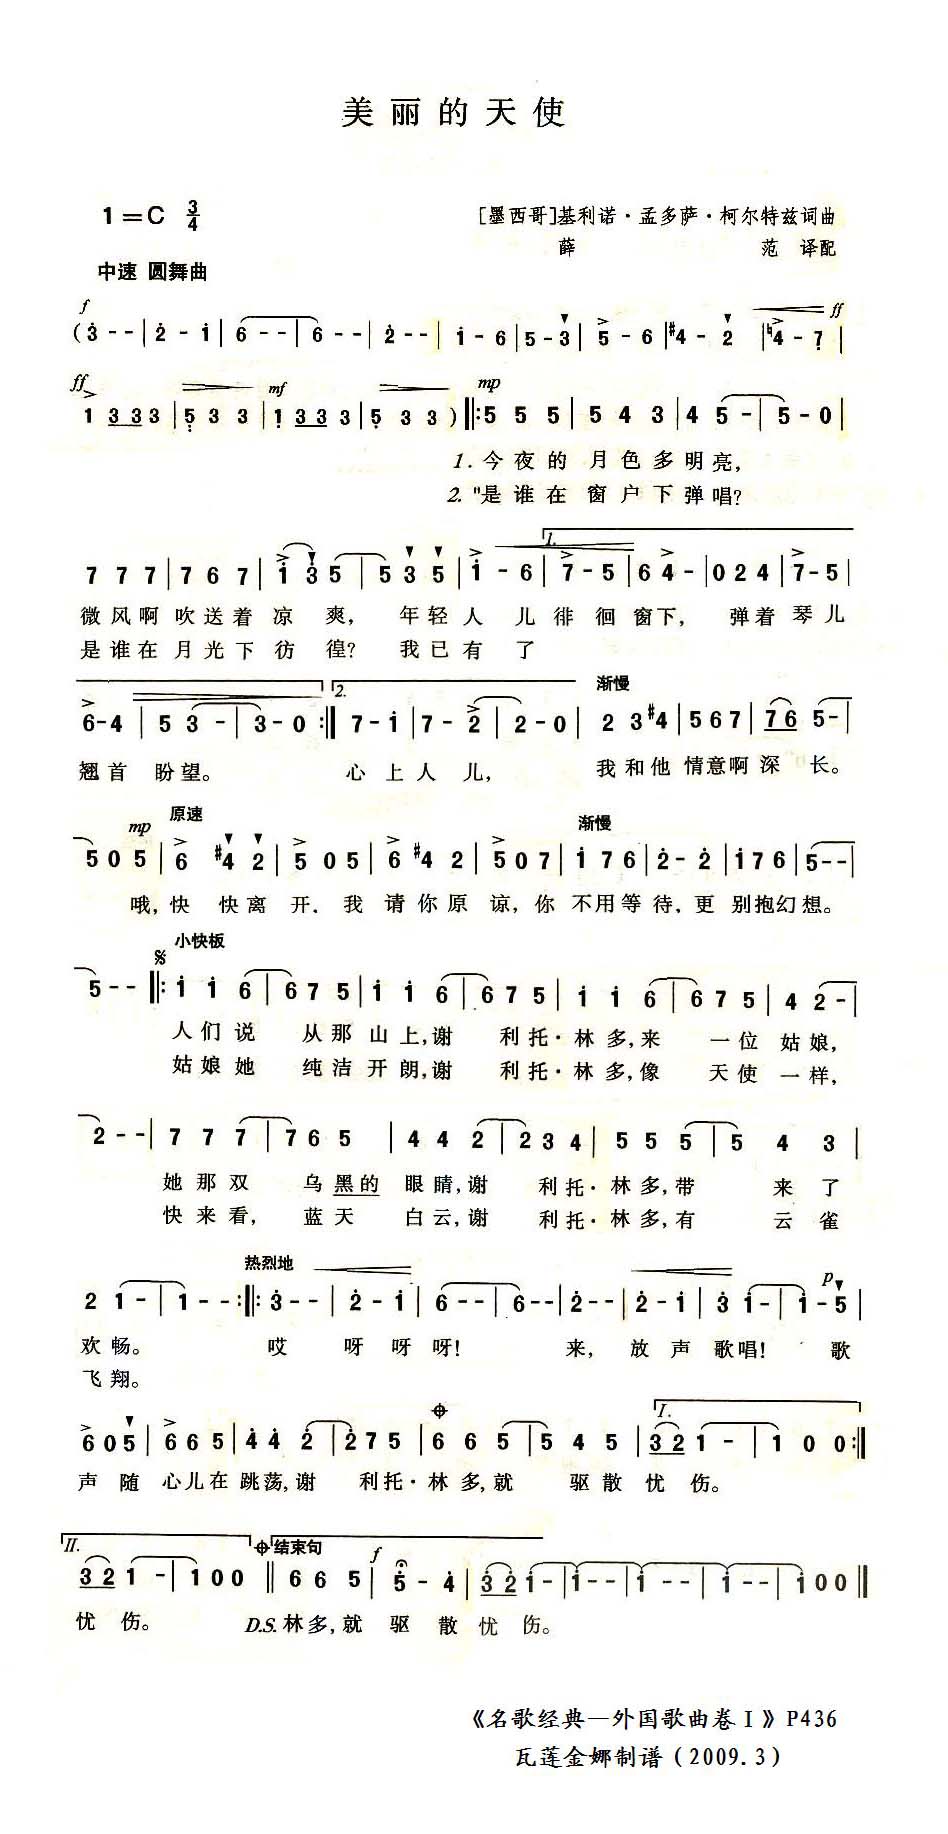 美丽的天使
1=C 3/4
[墨西哥]基利诺·孟多萨·柯尔特兹词曲
薛 范 译配
中速 圆舞曲
f ff
(3̇ - - | 2̇ - i | 6 - - | 6 - - | 2̇ - - | i - 6 | 5 - 3̇ | 5 - 6 | #4 - 2 | ♮4 - 7̣ |
ff mf mp
1 3 3 3 | 5̣ 3 3 | 1 3 3 3 | 5̣ 3 3 ) ‖: 5 5 5 | 5 4 3 | 4 5 - | 5 - 0 |
1. 今夜的 月色多明亮,
2. "是谁在 窗户下弹唱?
1.
7 7 7 | 7 6 7 | i 3̇ 5 | 5 3 5 | i - 6 | 7 - 5 | 6 4 - | 0 2 4 | 7 - 5 |
微风啊 吹送着 凉 爽, 年轻人 儿徘徊窗下, 弹着琴儿
是谁在 月光下 彷 徨? 我已有 了
2. 渐慢
6 - 4 | 5 3 - | 3 - 0 :‖ 7 - i | 7 - 2̇ | 2̇ - 0 | 2 3 #4 | 5 6 7 | 7 6 5 - |
翘首 盼望。 心上人儿, 我和他 情意啊深 长。
mp 原速 渐慢
5 0 5 | 6 #4̇ 2̇ | 5 0 5 | 6 #4 2 | 5 0 7 | i 7 6 | 2̇ - 2̇ | i 7 6 | 5 - - |
哦,快 快离 开. 我 请你原 谅,你 不用等待,更 别抱幻想。
小快板
5 - - ‖: i i 6 | 6 7 5 | i i 6 | 6 7 5 | i i 6 | 6 7 5 | 4 2 - |
人们说 从那山上,谢 利托·林多,来 一位姑娘,
姑娘她 纯洁开朗,谢 利托·林多,像 天使一样,
2 - - | 7 7 7 | 7 6 5 | 4 4 2 | 2 3 4 | 5 5 5 | 5 4 3 |
她那双 乌黑的 眼睛,谢 利托·林多,带 来了
快来看, 蓝天 白云,谢 利托·林多,有 云雀
热烈地 p
2 1 - | 1 - - :‖: 3̇ - - | 2̇ - i | 6 - - | 6 - - | 2̇ - - | 2̇ - i | 3̇ i - | i - 5 |
欢畅。 哎 呀呀呀! 来, 放声歌唱! 歌
飞翔。
I.
6 0 5 | 6 6 5 | 4̇ 4̇ 2̇ | 2̇ 7 5 | 6 6 5 | 5 4 5 | 3 2 1 - | 1 0 0 :‖
声随 心儿在跳荡,谢 利托·林多,就 驱散忧伤。
II. 结束句 f
3 2 1 - | 1 0 0 ‖ 6 6 5 | 5̇ - 4̇ | 3̇ 2̇ i - | i - - | i - - | i - - | i 0 0 ‖
忧伤。 D.S.林多,就 驱散忧伤。
《名歌经典—外国歌曲卷Ⅰ》P436
瓦莲金娜制谱(2009.3)